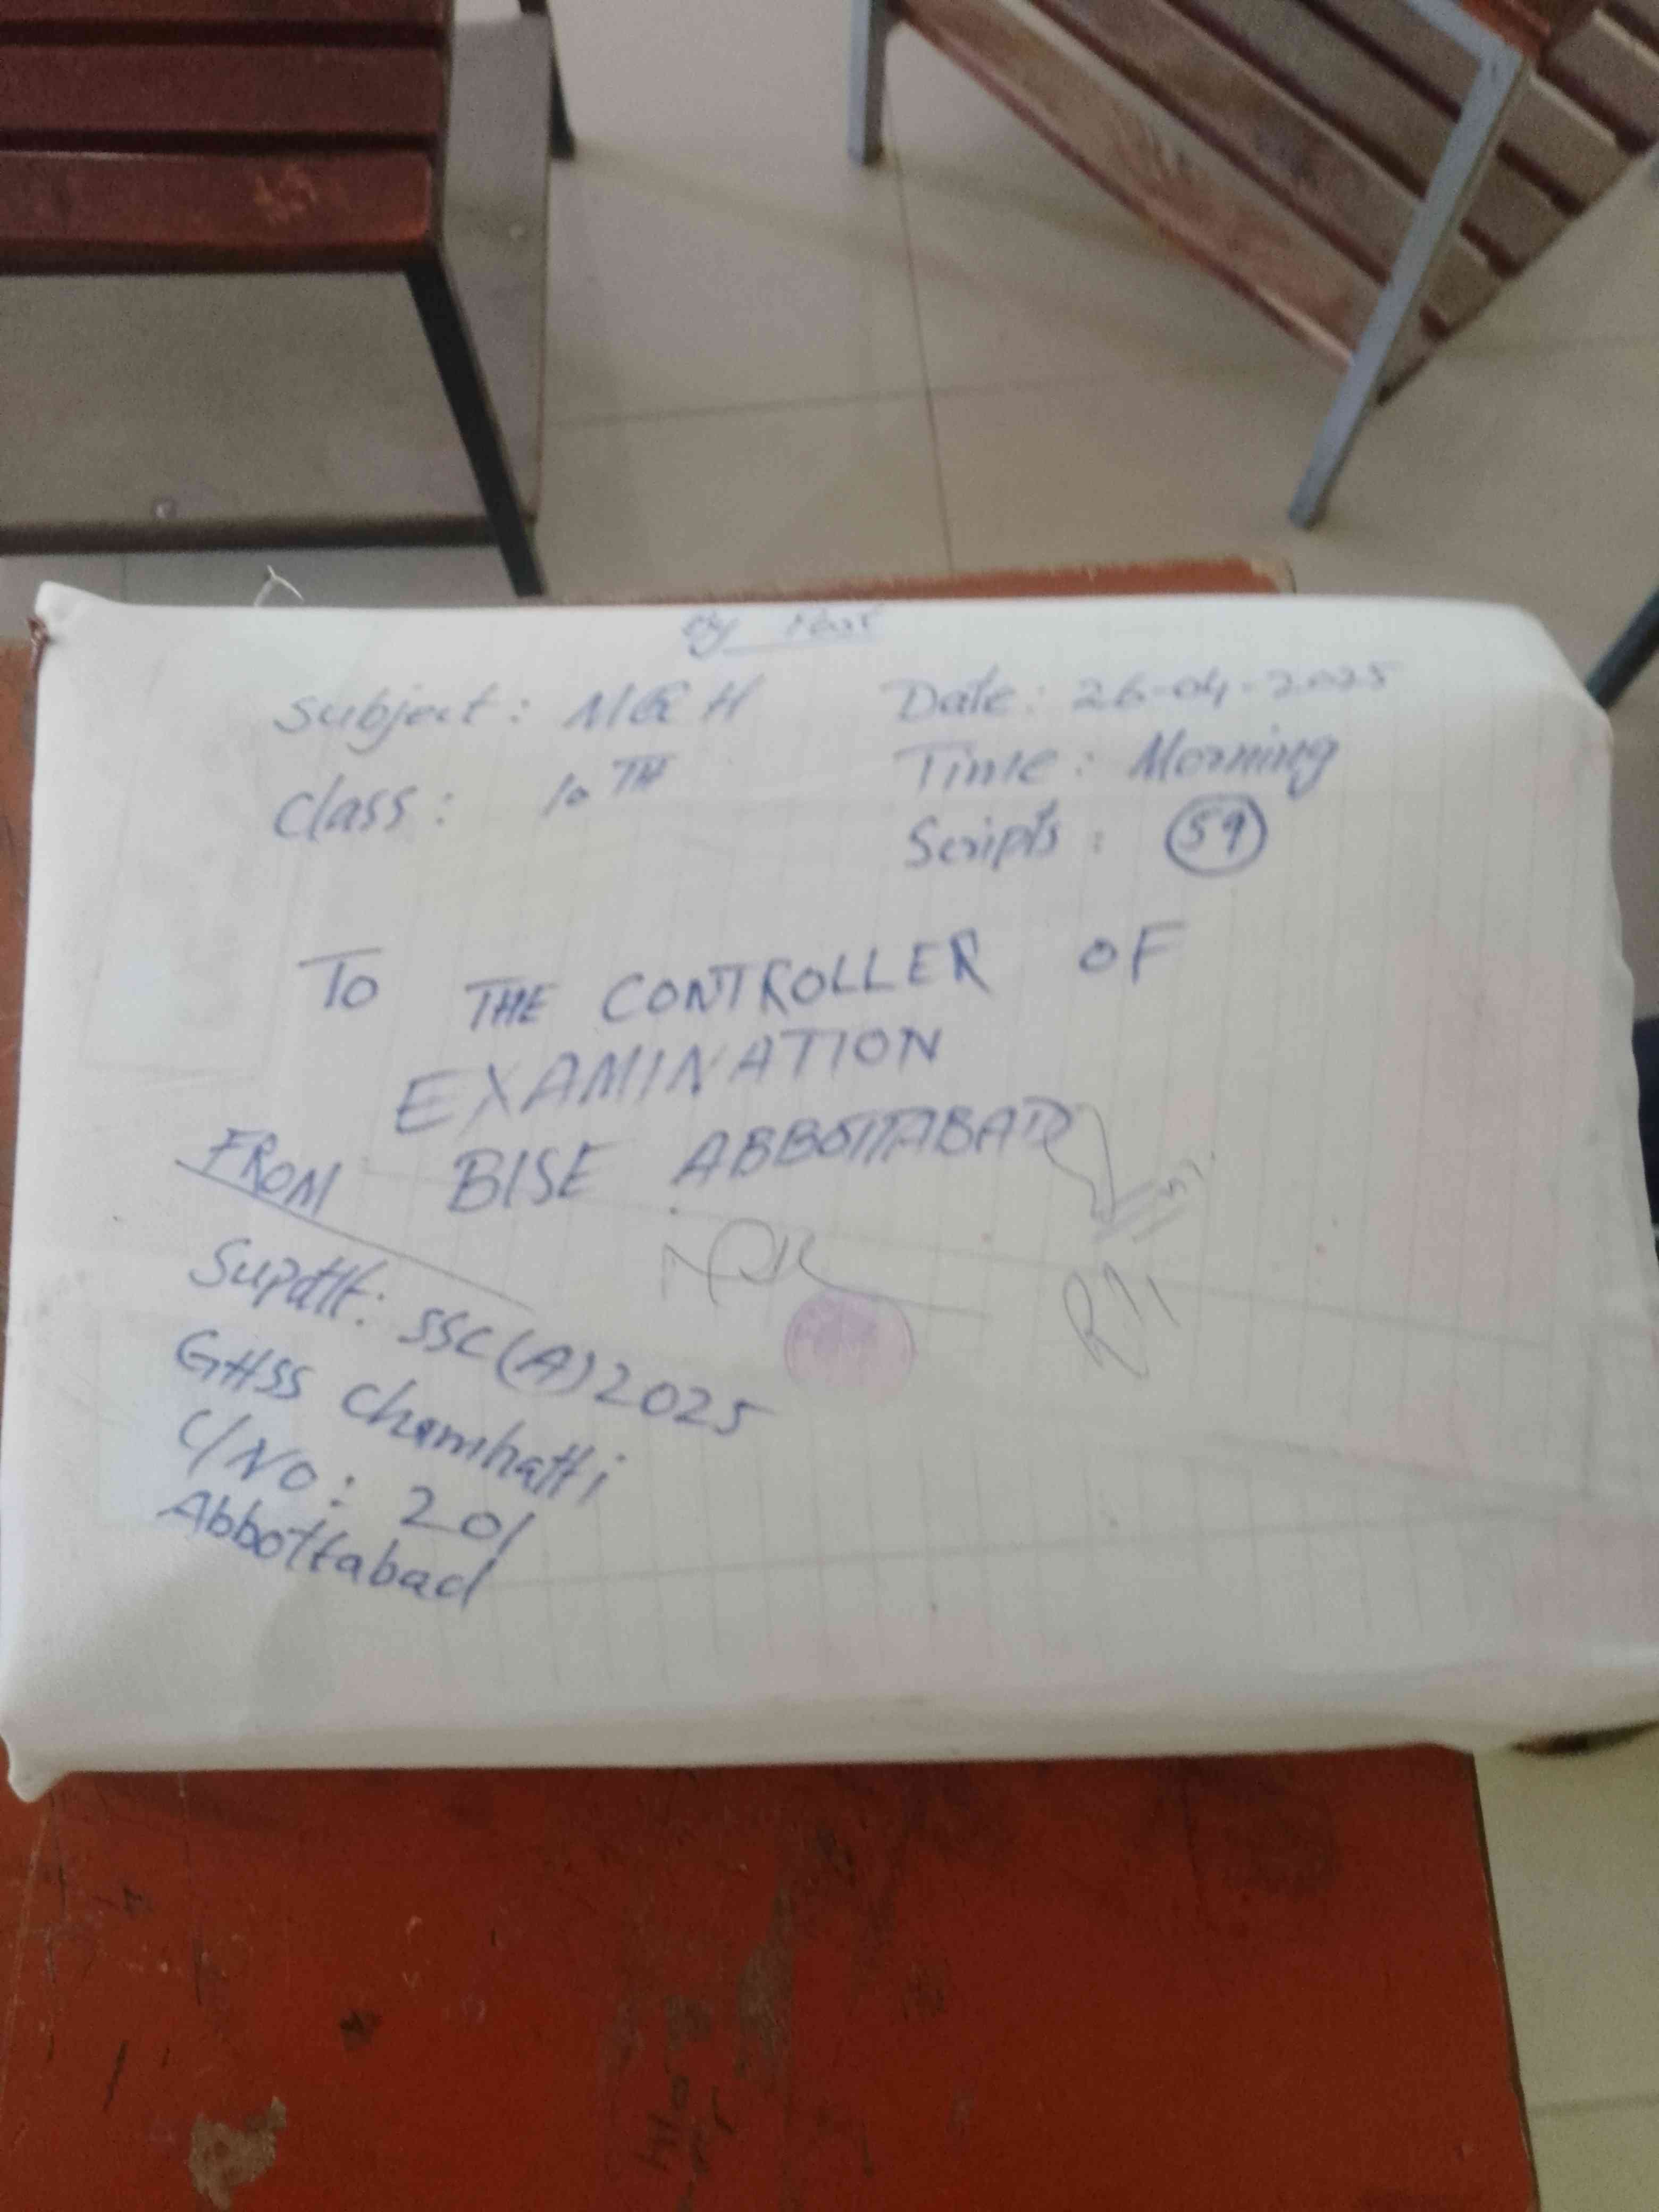 By Post
Subject: MQH Date: 26-04-2025
Class: 10TH Time: Morning
Scripts: 59
TO THE CONTROLLER OF
EXAMINATION
BISE ABBOTTABAD
FROM
Supdtt: SSC(A)2025
GHSS Chamhatti
C/NO: 201
Abbottabad